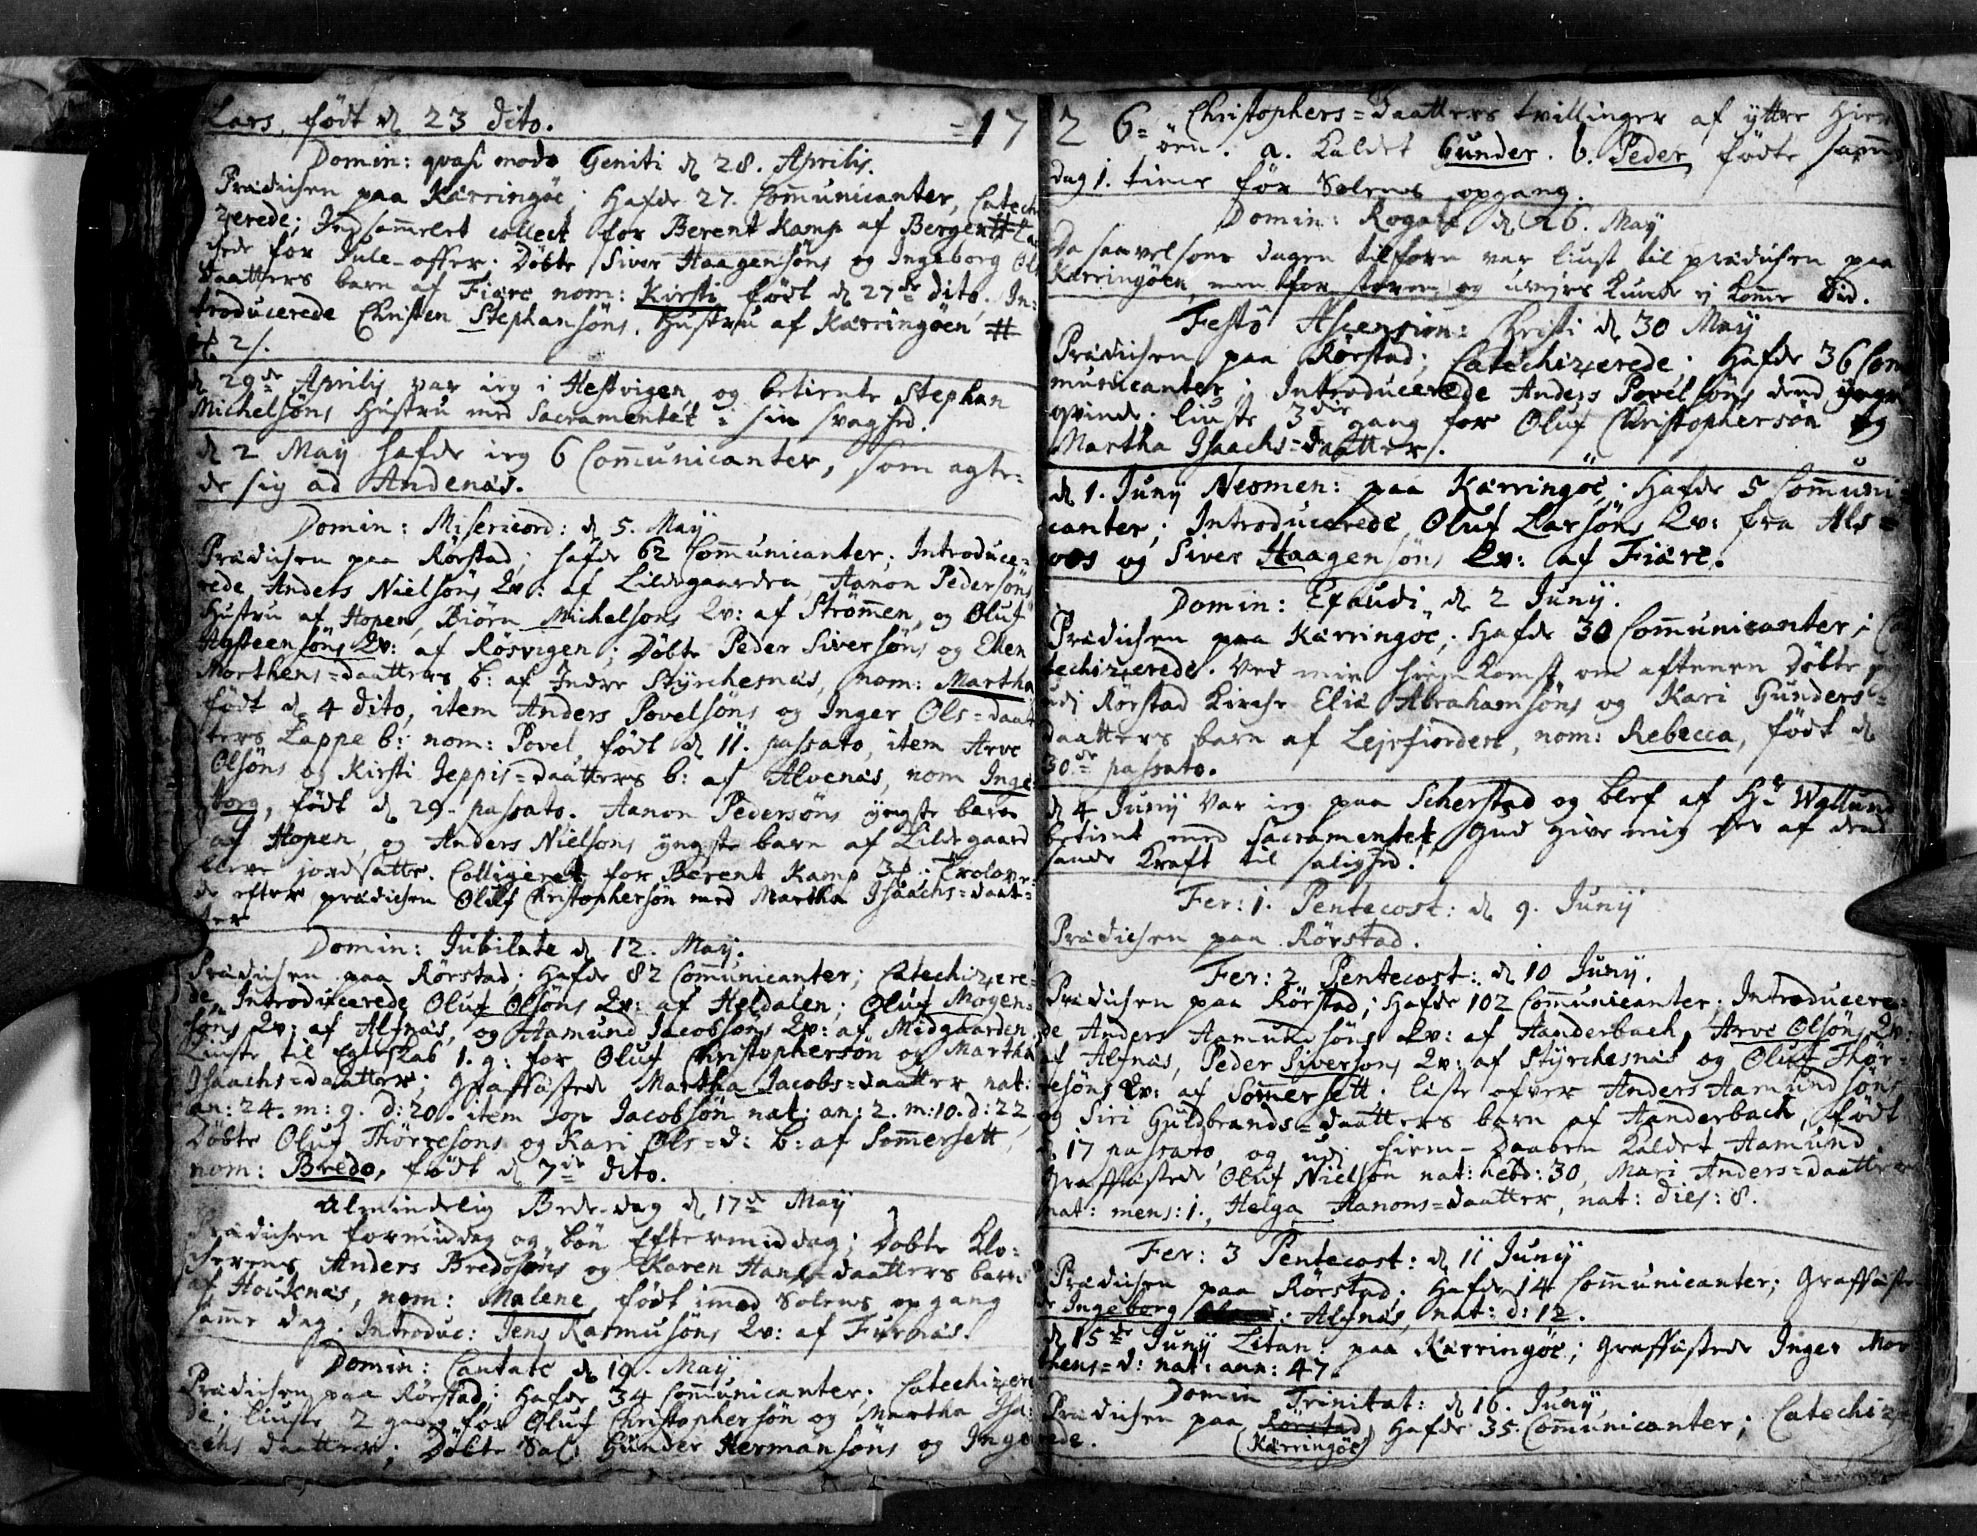 Lars, født d 23 dito. =17
Domin: qvasi modo Geniti d 28. Aprilis.
Prædichen paa Kærringøe; Hafde 27. Communicanter, Catechi
zerede; Indsammelet collect for Berent Kamp af Bergen #
for Jule-offer; Døbte Siver Haagensøns og Ingeborg Ols
daatters barn af Fiære nom: Kirsti, født d 27de dito, In:
troducerede Christen Stephansøns Hustru af Kærringøen #
2/.
d 29de Aprilis var ieg i Hestvigen, og betiente Stephan
Michelsøns Hustru med Sacramentet i sin svaghed.
d 2 May hafde ieg 6 Communicanter, som agte-
de sig ad Andenæs.
Domin: Misericord: d 5. May
Prædichen paa Rørstad; hafde 62 Communicanter; Introduce=
rede Anders Nielsøns Qv: af Lildegaarden, Aanon Pedersøns
Hustru af Hopen, Biørn Michelsøns Qv: af Strømmen, og Oluf
Aysteensøns Qv: af Røsvigen; Døbte Peder Siversøns og Ellen
Morthens=daatters b: af Indre Styrchesnæs, nom: Martha
født d 4 dito, item Anders Povelsøns og Inger Ols=daat
ters Lappe b: nom: Povel, født d 11. passato, item Arve
Olsøns og Kirsti Jeppis=daatters b: af Alvenæs, nom Inge
borg, født d 29. passato. Aanon Pedersøns yngste barn
af Hopen, og Anders Nielsøns yngste barn af Lildegaard
bleve jordsatte. Colligeret for Berent Kamp Trolove=
de efter prædichen Oluf Christophersøn med Martha Isaachs=daat=
ter
Domin: Jubilate d 12. May.
Prædichen paa Rørstad; Hafde 82 Communicanter; Catechizere=
de, Introducerede Oluf Olsøns Qv: af Heldalen; Oluf Mogen=
søns Qv: af Alfnæs, og Aamund Jacobsøns Qv: af Midgaarden;
Liuste til Egteskab 1. g: for Oluf Christophersøn og Martha
Isaachs=daatter; Graffæstede Martha Jacobs=daatter, nat:
an: 24. m: 9. d: 20. item Jon Jacobsøn nat: an: 2. m: 10. d: 22
Døbte Oluf Thørresøns og Kari Ols=d: b: af Sommersett,
nom: Bredo, født d 7de dito.
Almindelig Bede-dag d 17de May
Prædichen formiddag og bøn Eftermiddag; Døbte Klo=
cherens Anders Bredosøns og Karen Hans=daatters barn
af Houknæs, nom: Malene, født imod Solens opgang
samme dag. Introduc: Jens Rasmusøns Qv: af Furnæs.
Domin: Cantate d 19. May
Prædichen paa Rørstad; Hafde 34 Communicanter; Catechizere
de; liuste 2 gang for Oluf Christophersøn og Martha Isa=
achs daatter; Døbte Gunder Hermansøns og Inge
2 6= Christophers=Daatters tvillinger af yttre Hier
øen. a. Kaldet Gunder. b. Peder, fødte samme
dag 1. time før Solens opgang.
Domin: Rogate d 26. May
Da saavelsom dagen tilforn var liust til prædichen paa
Kærringøen, men for storm og uvejrs Kunde ej Komme Did.
Festo Ascension: Christi d 30 May
Prædichen paa Rørstad; Catechizerede; Hafde 36 Com
municanter; Introducerede Anders Povelsøns dend
qvinde; liuste 3die gang for Oluf Christophersøn og
Martha Isaachs=daatter.
d 1. Juny Neomen: paa Kærringøe; Hafde 5 Communi=
canter; Introducerede Oluf Larsøns Qv: fra Als=
oos og Siver Haagensøns Qv: af Fiære.
Domin: Exaudi d 2 Juny.
Prædichen paa Kærringøe; Hafde 30 Communicanter; Ca
techizerede. Ved min hiemKomst om aftenen Døbte
udi Rørstad Kirche Elias Abrahamsøns og Kari Gunders=
daatters barn af Lejrfiorden, nom: Rebecca, født d
30de passato.
d 4 Juny Var ieg paa Scherstad og blef af Hr Wyllund
betient med Sacramentet, Gud give mig der af dend
sande Kraft til salighed.
Fer: 1. Pentecost: d 9. Juny
Prædichen paa Rørstad.
Fer: 2 Pentecost: d 10 Juny.
Prædichen paa Rørstad; Hafde 102 Communicanter; Introducere=
de Anders Aamundsøns Qv: af Aanderbach, Arve Olsøns Qv:
af Alfnæs, Peder Siversøns Qv: af Styrchesnæs og Oluf Thør=
resøns Qv: af Sommersett; læste ofver Anders Aamundsøns
og Siri Guldbrands=daatters barn af Aanderbach, født
d 17 passato, og udi hiem-Daaben Kaldet Aamund.
Graffæstede Oluf Nielsøn nat: hebd: 30, Mari Anders=daatter
nat: mens: 1., Helga Aanons=daatter, nat: dies: 8.
Fer: 3 Pentecost: d 11 Juny
Prædichen paa Rørstad; Hafde 14 Communicanter; Graffæste
de Ingeborg Alfnæs, nat: d: 12.
d 15de Juny Litan: paa Kærringøe; Graffæstede Inger Mor
thens=d: nat: ann: 47.
Domin Trinitat: d 16. Juny
Prædichen paa Rørstad Hafde 35. Communicanter; Catechize
rede. (Kærringøe)